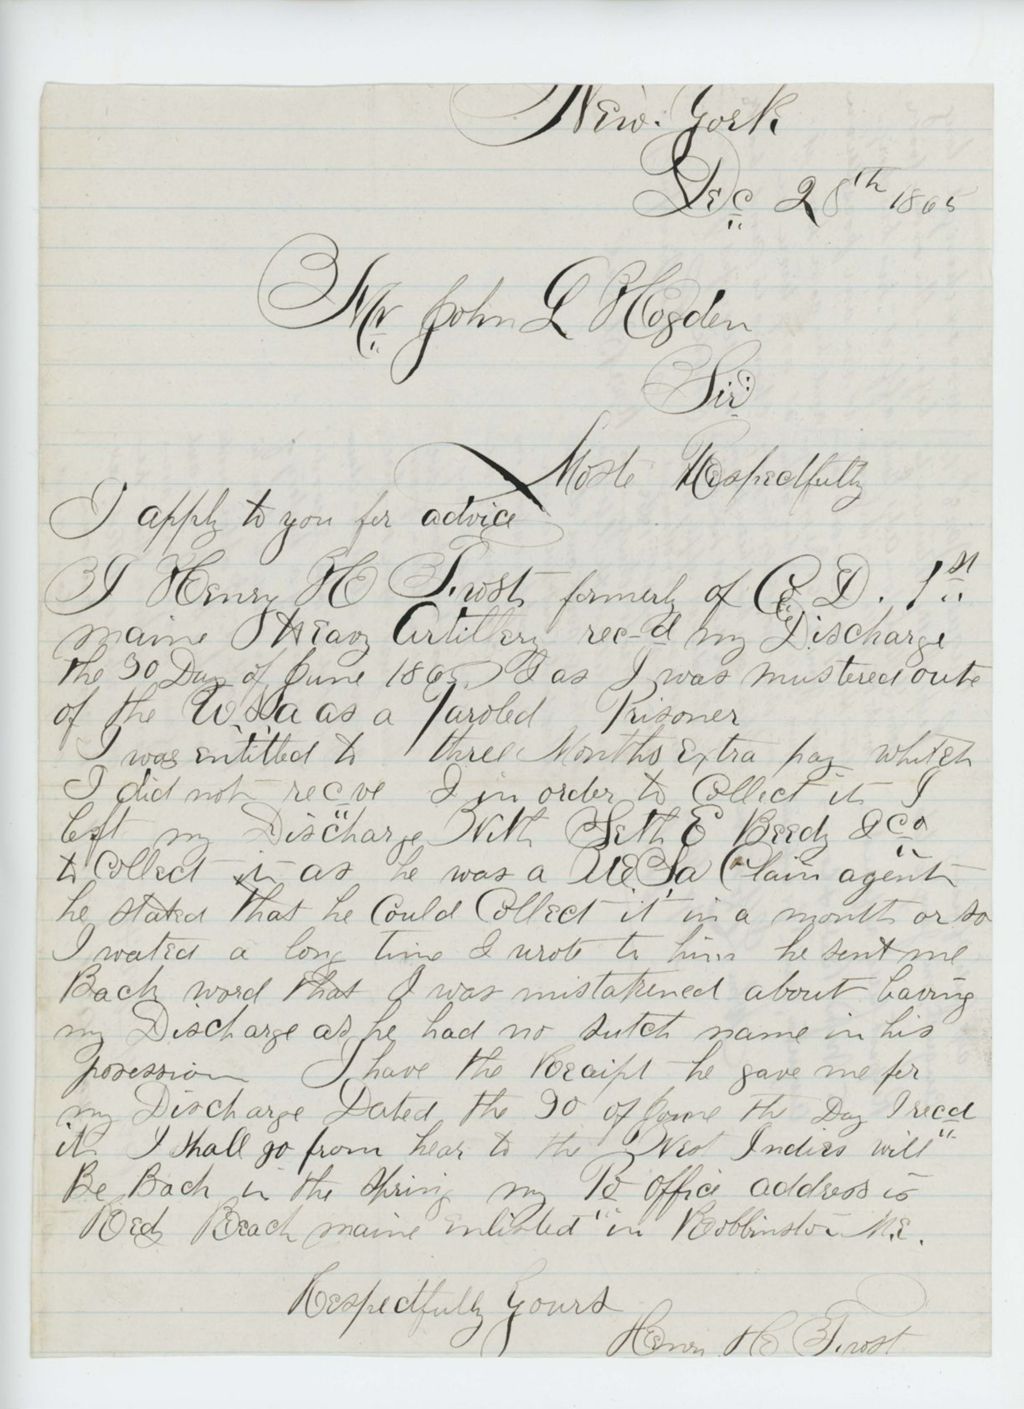 New. York
Dec 28th 1865
Mr John L Hogden
Sir
Moste Respectfully
I apply to you for advice
I Henry H Frost formerly of Co. D. 1st
maine Heavy Artillery rec-d my Discharge
the 30 Day of June 1865 & as I was mustered oute
of the U.S.a as a Paroled Prisoner
I was entitled to three Months Extra pay whitch
I did not recve & in order to Collect it I
left my Discharge With Seth E Beedy & co
to Collect it as he was a U Sa Claim agent
he stated that he Could Collect it in a month or so
I wated a long time I wrote to him he sent me
Back word that I was mistakened about having
my Discharge as he had no sutch name in his
posession I have the Receipt he gave me for
my Discharge Dated the 30 of June the Day I recd
it I shall go from hear to the West Indies will
Be Back in the Spring my Po office address is
Red Beach maine enlisted in Robbinston M.E.
Respectfully Yours
Henry H Frost